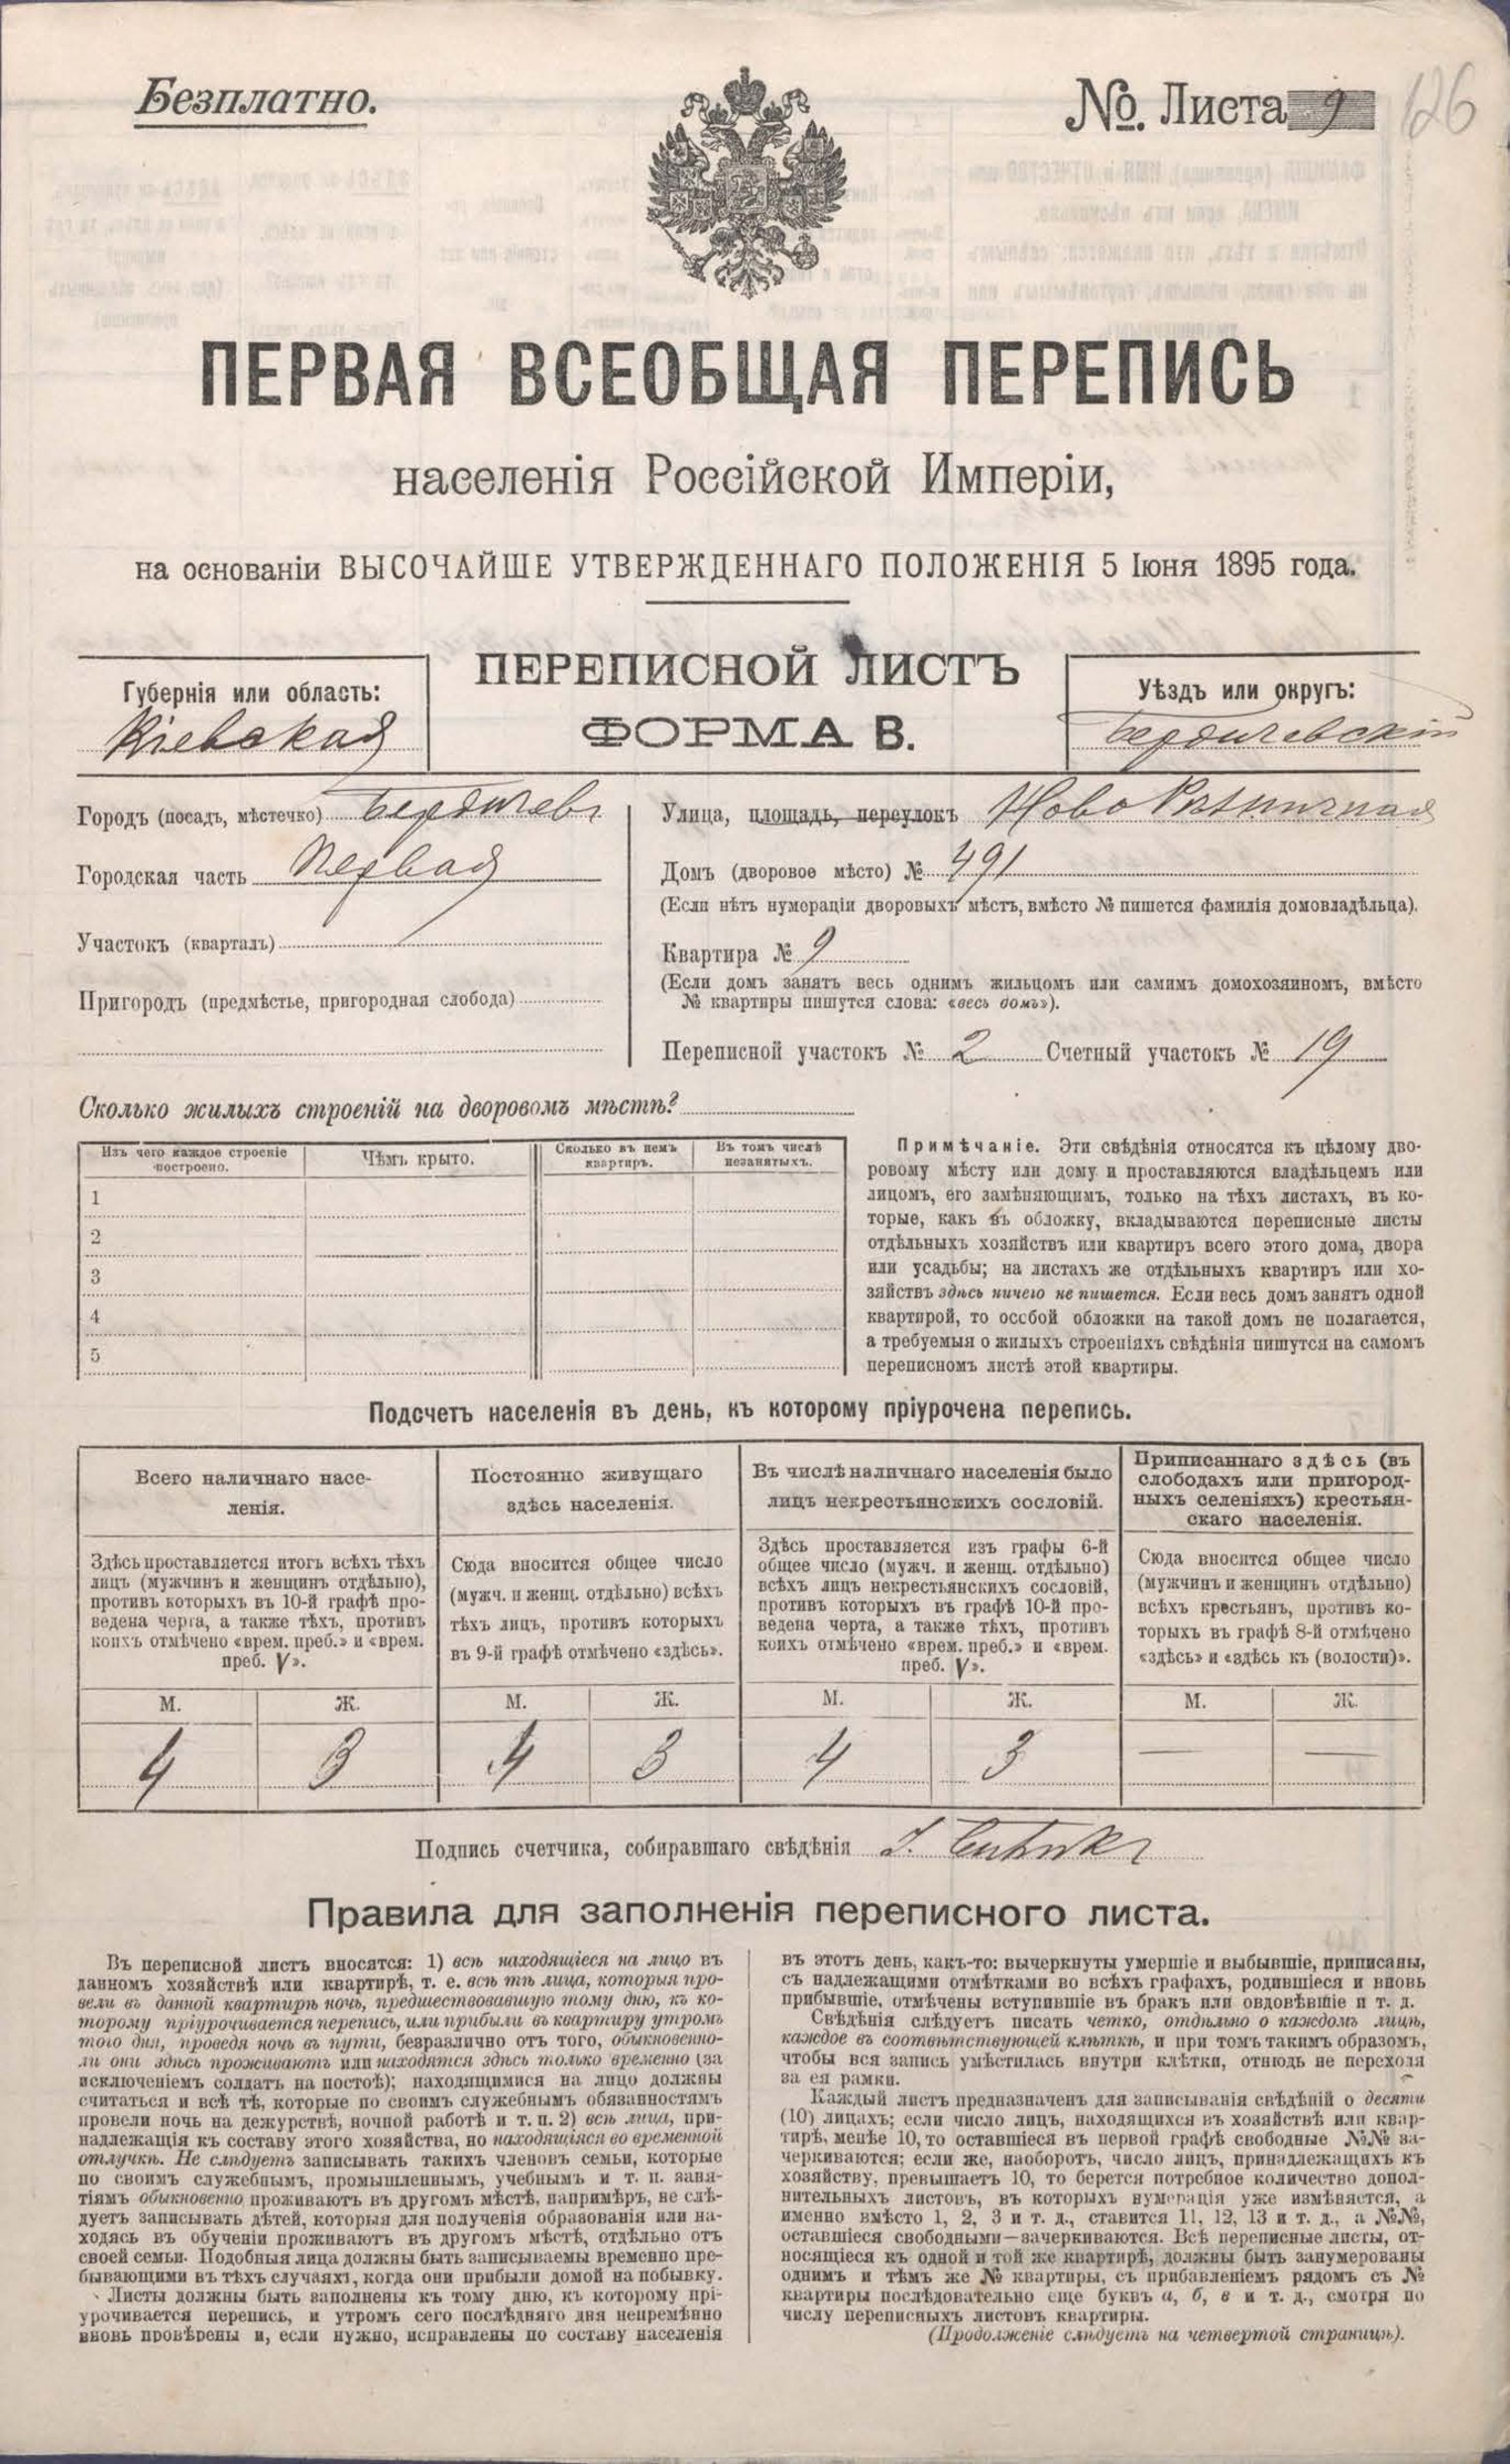 Безплатно.
№. Листа 9
126
ПЕРВАЯ ВСЕОБЩАЯ ПЕРЕПИСЬ
населенія Россійской Имперіи,
на основаніи ВЫСОЧАЙШЕ УТВЕРЖДЕННАГО ПОЛОЖЕНІЯ 5 Іюня 1895 года.
ПЕРЕПИСНОЙ ЛИСТЪ
ФОРМА В.
Губернія или область:
Кіевская
Уѣздъ или округъ:
Бердичевскій
Городъ (посадъ, мѣстечко) Бердичевъ
Городская часть Первая
Участокъ (кварталъ)
Пригородъ (предмѣстье, пригородная слобода)
Улица, площадь, переулокъ Ново
Домъ (дворовое мѣсто) № 491
(Если нѣтъ нумераціи дворовыхъ мѣстъ, вмѣсто № пишется фамилія домовладѣльца).
Квартира № 9
(Если домъ занятъ весь однимъ жильцомъ или самимъ домохозяиномъ, вмѣсто
№ квартиры пишутся слова: «весь домъ»).
Переписной участокъ № 2 Счетный участокъ № 19
Сколько жилыхъ строеній на дворовомъ мѣстѣ?
Изъ чего каждое строеніе
построено.
Чѣмъ крыто.
Сколько въ немъ
квартиръ.
Въ томъ числѣ
незанятыхъ.
1
2
3
4
5
Примѣчаніе. Эти свѣдѣнія относятся къ цѣлому дво-
ровому мѣсту или дому и проставляются владѣльцемъ или
лицомъ, его замѣняющимъ, только на тѣхъ листахъ, въ ко-
торые, какъ въ обложку, вкладываются переписные листы
отдѣльныхъ хозяйствъ или квартиръ всего этого дома, двора
или усадьбы; на листахъ же отдѣльныхъ квартиръ или хо-
зяйствъ здѣсь ничего не пишется. Если весь домъ занятъ одной
квартирой, то особой обложки на такой домъ не полагается,
а требуемыя о жилыхъ строеніяхъ свѣдѣнія пишутся на самомъ
переписномъ листѣ этой квартиры.
Подсчетъ населенія въ день, къ которому пріурочена перепись.
Всего наличнаго насе-
ленія.
Здѣсь проставляется итогъ всѣхъ тѣхъ
лицъ (мужчинъ и женщинъ отдѣльно),
противъ которыхъ въ 10-й графѣ про-
ведена черта, а также тѣхъ, противъ
коихъ отмѣчено «врем. преб.» и «врем.
преб. V».
М. Ж.
4 3
Постоянно живущаго
здѣсь населенія.
Сюда вносится общее число
(мужч. и женщ. отдѣльно) всѣхъ
тѣхъ лицъ, противъ которыхъ
въ 9-й графѣ отмѣчено «здѣсь».
М. Ж.
4 3
Въ числѣ наличнаго населенія было
лицъ некрестьянскихъ сословій.
Здѣсь проставляется изъ графы 6-й
общее число (мужч. и женщ. отдѣльно)
всѣхъ лицъ некрестьянскихъ сословій,
противъ которыхъ въ графѣ 10-й про-
ведена черта, а также тѣхъ, противъ
коихъ отмѣчено «врем. преб.» и «врем.
преб. V».
М. Ж.
4 3
Приписаннаго здѣсь (въ
слободахъ или пригород-
ныхъ селеніяхъ) крестьян-
скаго населенія.
Сюда вносится общее число
(мужчинъ и женщинъ отдѣльно)
всѣхъ крестьянъ, противъ ко-
торыхъ въ графѣ 8-й отмѣчено
«здѣсь» и «здѣсь къ (волости)».
М. Ж.
— —
Подпись счетчика, собиравшаго свѣдѣнія
Правила для заполненія переписного листа.
Въ переписной листъ вносятся: 1) всѣ находящіеся на лицо въ
данномъ хозяйствѣ или квартирѣ, т. е. всѣ тѣ лица, которыя про-
вели въ данной квартирѣ ночь, предшествовавшую тому дню, къ ко-
торому пріурочивается перепись, или прибыли въ квартиру утромъ
того дня, проведя ночь въ пути, безразлично отъ того, обыкновенно-
ли они здѣсь проживаютъ или находятся здѣсь только временно (за
исключеніемъ солдатъ на постоѣ); находящимися на лицо должны
считаться и всѣ тѣ, которые по своимъ служебнымъ обязанностямъ
провели ночь на дежурствѣ, ночной работѣ и т. п. 2) всѣ лица, при-
надлежащія къ составу этого хозяйства, но находящіяся во временной
отлучкѣ. Не слѣдуетъ записывать такихъ членовъ семьи, которые
по своимъ служебнымъ, промышленнымъ, учебнымъ и т. п. заня-
тіямъ обыкновенно проживаютъ въ другомъ мѣстѣ, напримѣръ, не слѣ-
дуетъ записывать дѣтей, которыя для полученія образованія или на-
ходясь въ обученіи проживаютъ въ другомъ мѣстѣ, отдѣльно отъ
своей семьи. Подобныя лица должны быть записываемы временно пре-
бывающими въ тѣхъ случаяхъ, когда они прибыли домой на побывку.
Листы должны быть заполнены къ тому дню, къ которому прі-
урочивается перепись, и утромъ сего послѣдняго дня непремѣнно
вновь провѣрены и, если нужно, исправлены по составу населенія
въ этотъ день, какъ-то: вычеркнуты умершіе и выбывшіе, приписаны,
съ надлежащими отмѣтками во всѣхъ графахъ, родившіеся и вновь
прибывшіе, отмѣчены вступившіе въ бракъ или овдовѣвшіе и т. д.
Свѣдѣнія слѣдуетъ писать четко, отдѣльно о каждомъ лицѣ,
каждое въ соотвѣтствующей клѣткѣ, и при томъ такимъ образомъ,
чтобы вся запись умѣстилась внутри клѣтки, отнюдь не переходя
за ея рамки.
Каждый листъ предназначенъ для записыванія свѣдѣній о десяти
(10) лицахъ; если число лицъ, находящихся въ хозяйствѣ или квар-
тирѣ, менѣе 10, то оставшіеся въ первой графѣ свободные №№ за-
черкиваются; если же, наоборотъ, число лицъ, принадлежащихъ къ
хозяйству, превышаетъ 10, то берется потребное количество допол-
нительныхъ листовъ, въ которыхъ нумерація уже измѣняется, а
именно вмѣсто 1, 2, 3 и т. д., ставится 11, 12, 13 и т. д., а №№,
оставшіеся свободными—зачеркиваются. Всѣ переписные листы, от-
носящіеся къ одной и той же квартирѣ, должны быть занумерованы
однимъ и тѣмъ же № квартиры, съ прибавленіемъ рядомъ съ №
квартиры послѣдовательно еще буквъ а, б, в и т. д., смотря по
числу переписныхъ листовъ квартиры.
(Продолженіе слѣдуетъ на четвертой страницѣ).